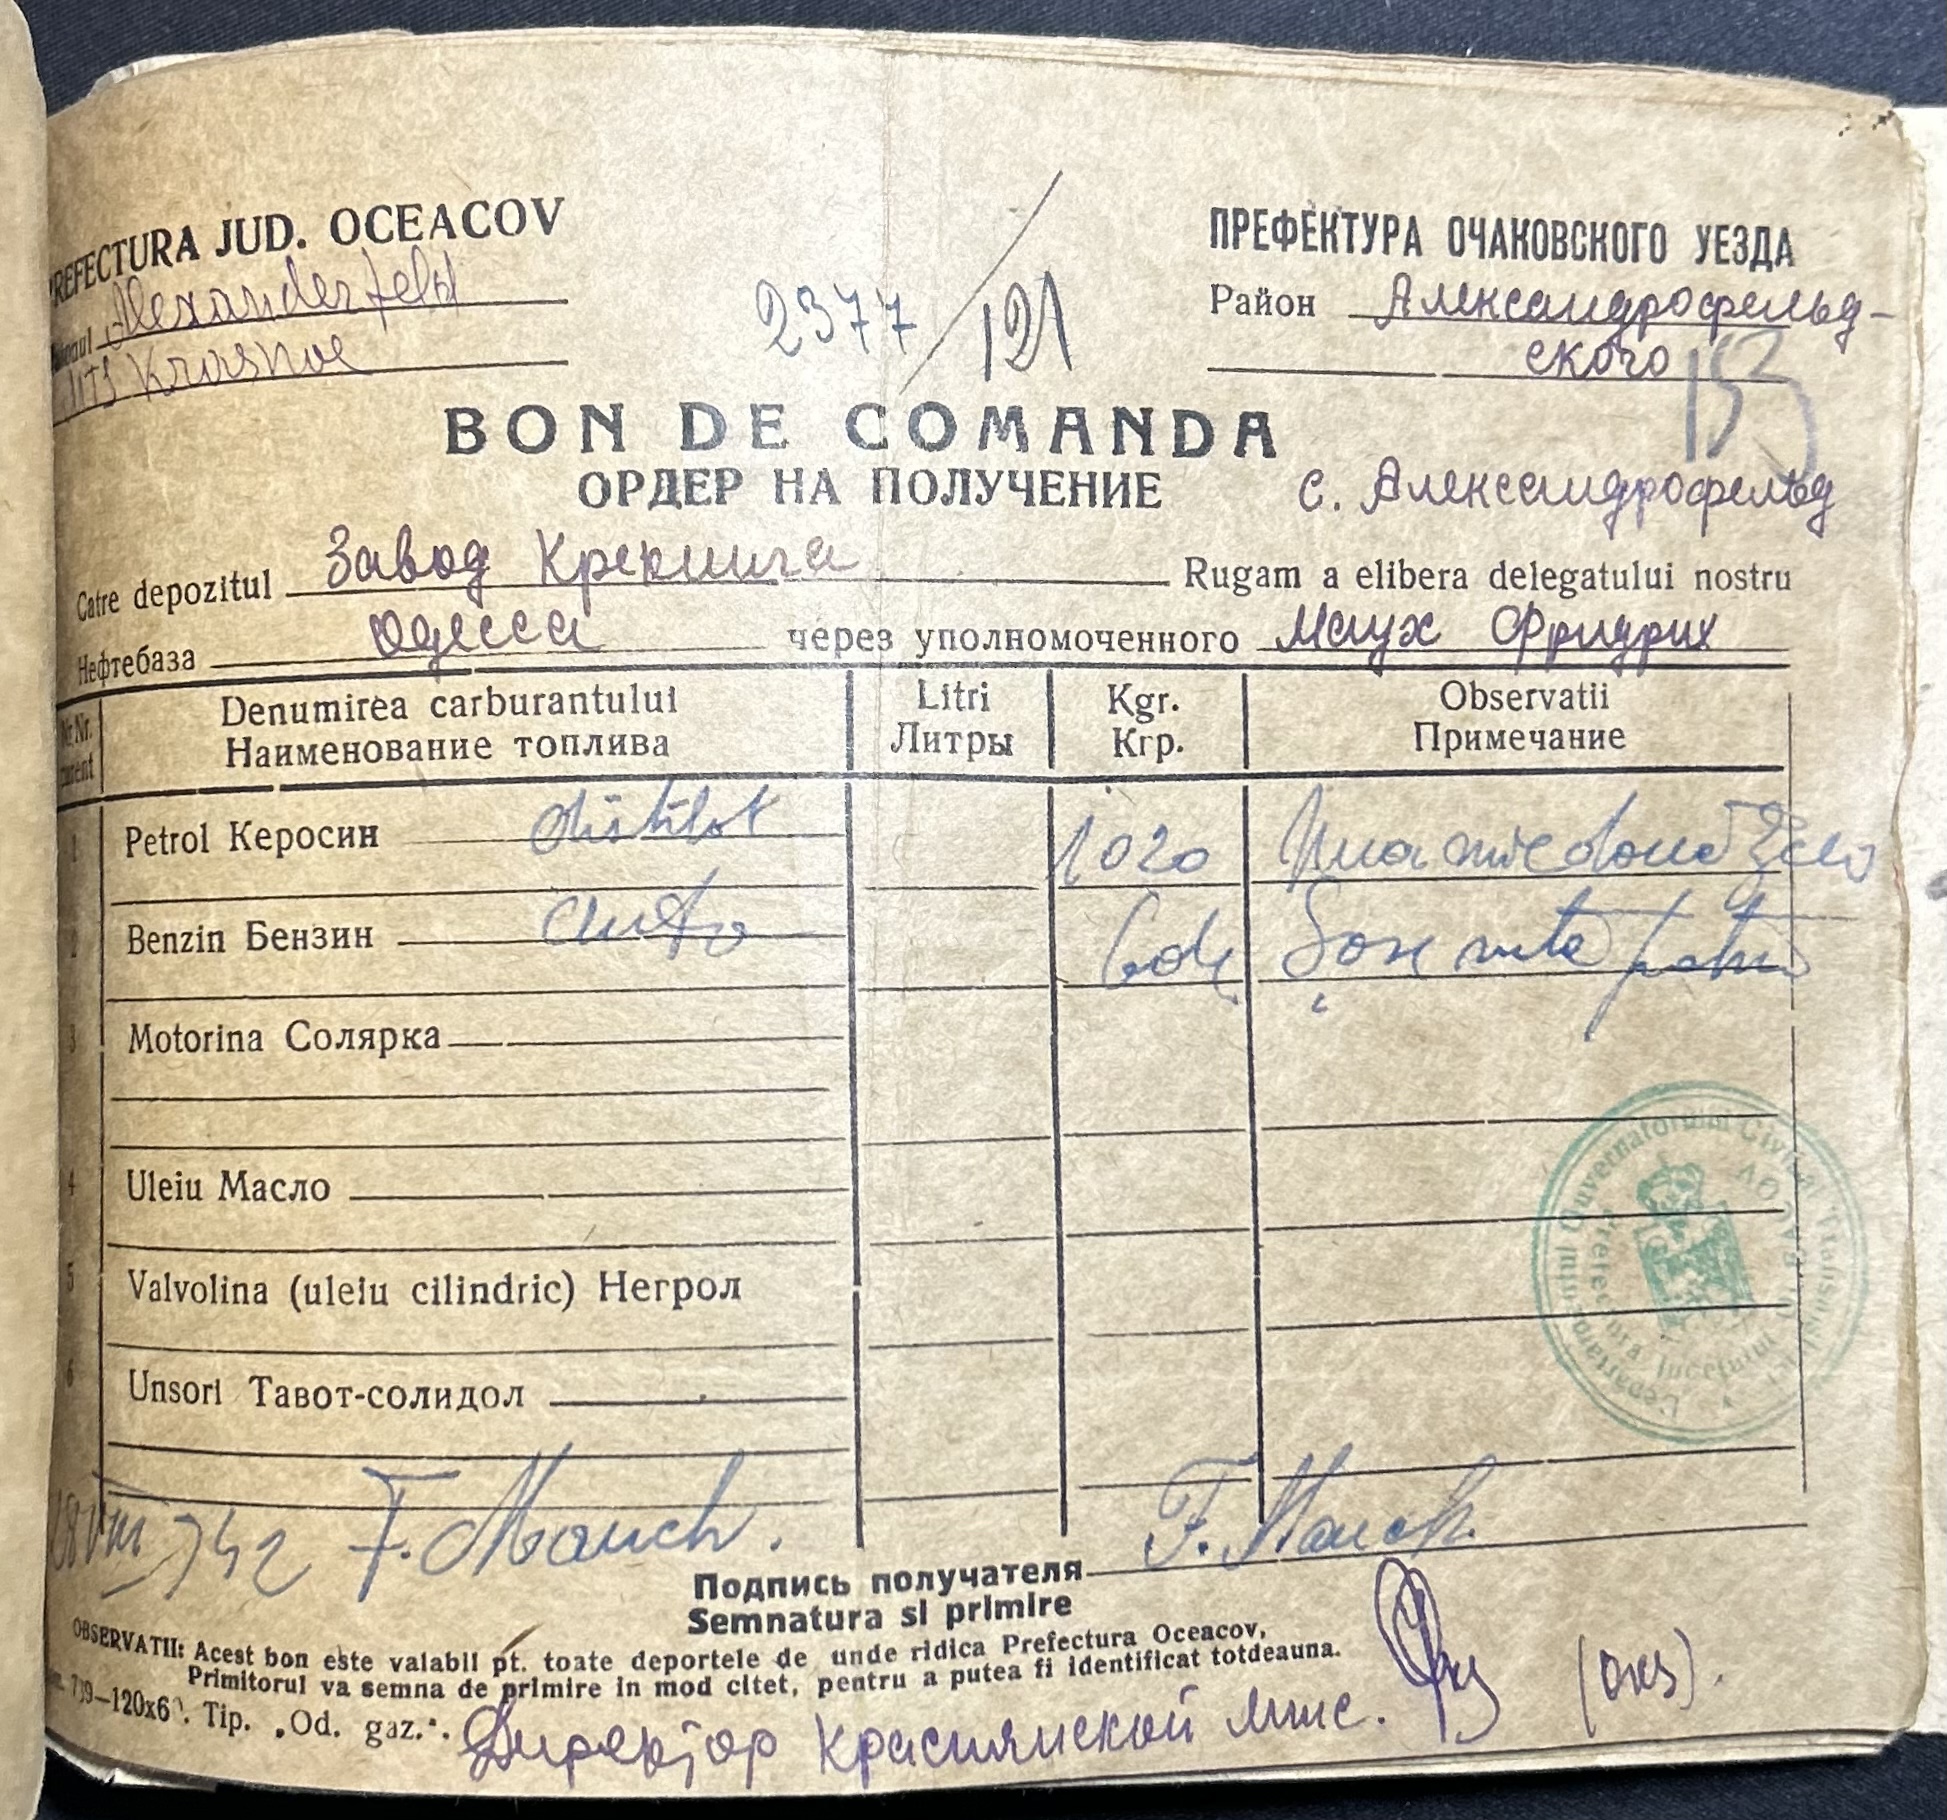 PREFECTURA JUD. OCEACOV
Alexanderfeld
MTS Krasnoe
2377/121
ПРЕФЕКТУРА ОЧАКОВСКОГО УЕЗДА
Район Александрофельд-
ского
153
BON DE COMANDA
ОРДЕР НА ПОЛУЧЕНИЕ
с. Александрофельд
Catre depozitul Завод Крекинга Rugam a elibera delegatului nostru
Нефтебаза Одесса через уполномоченного Маух Фридрих
Nr. Denumirea carburantului Litri Kgr. Observatii
Наименование топлива Литры Кгр. Примечание
1 Petrol Керосин distilat 1020 Una mie două zeci
2 Benzin Бензин auto 604 Șase sute patru
3 Motorina Солярка
4 Uleiu Масло
5 Valvolina (uleiu cilindric) Негрол
6 Unsori Тавот-солидол
Guvernatorului Civil al Transnistriei
Prefectura Judetului
VIII 942 F. Mauch. F. Mauch.
Подпись получателя
Semnatura si primire
OBSERVATII: Acest bon este valabil pt. toate deportele de unde ridica Prefectura Oceacov,
Primitorul va semna de primire in mod citet, pentru a putea fi identificat totdeauna.
Tip. „Od. gaz.".
Директор Краснянской мтс. (окз).